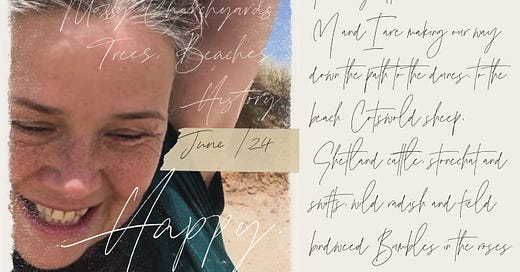 Mossy Churchyards.
Trees. Beaches.
History.
June /24
Happy.
M and I are making our way
down the path to the dunes, to the
beach. Cotswold sheep.
Shetland cattle, stonechat and
swifts, wild radish and field
bindweed. Bumbles in the roses